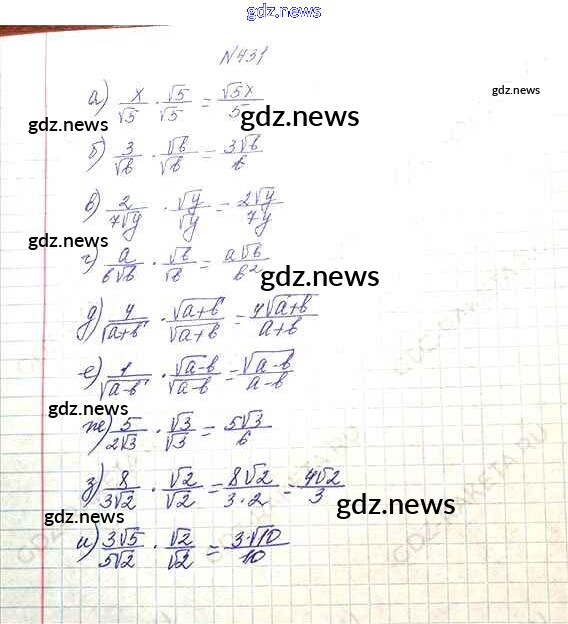 gdz.news
N431
gdz.news
а) x/√5 · √5/√5 = √5x/5
gdz.news
gdz.news
б) 3/√b · √b/√b = 3√b/b
в) 2/7√y · √y/√y = 2√y/7y
gdz.news
г) a/b√b · √b/√b = a√b/b²
gdz.news
д) 4/√a+b · √a+b/√a+b = 4√a+b/a+b
gdz.news
е) 1/√a-b · √a-b/√a-b = √a-b/a-b
gdz.news
ж) 5/2√3 · √3/√3 = 5√3/6
з) 8/3√2 · √2/√2 = 8√2/3·2 = 4√2/3
gdz.news
gdz.news
и) 3√5/5√2 · √2/√2 = 3·√10/10
gdz.news